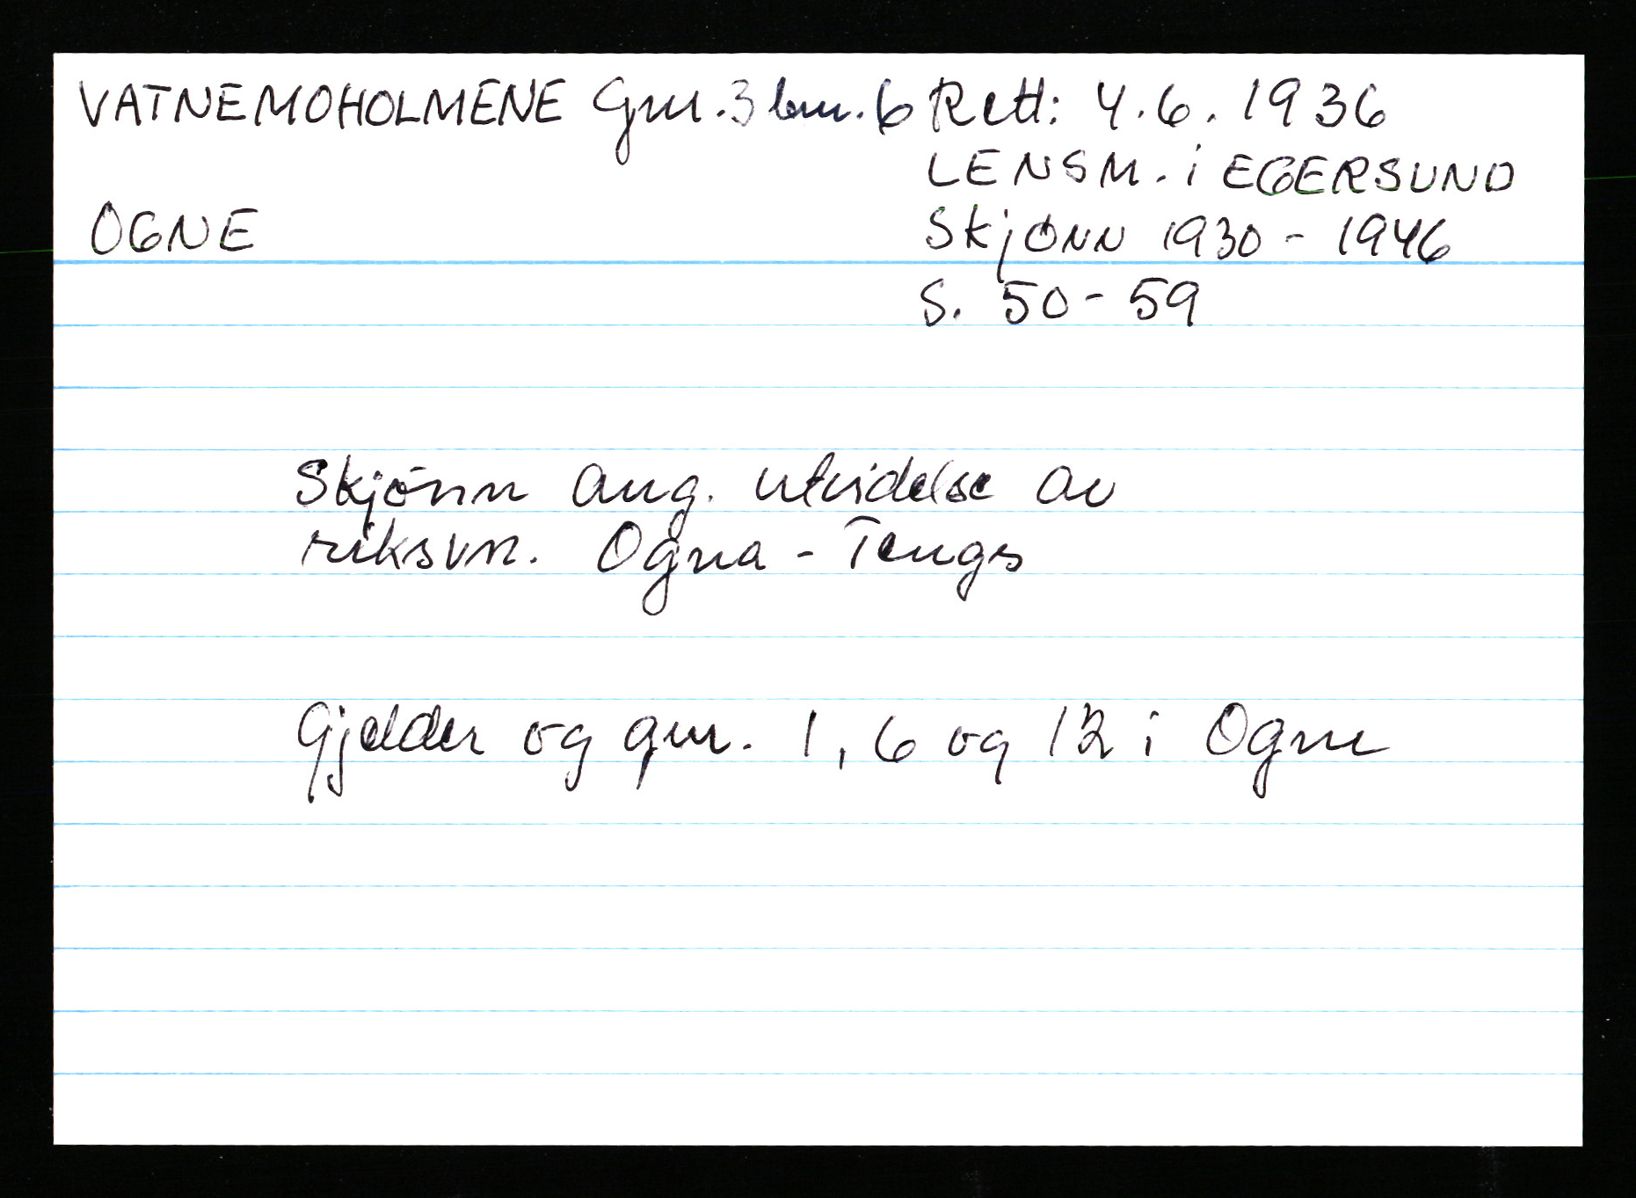 VATNEMOHOLMENE Gnr. 3 bnr. 6 Rett: 4.6.1936
LENSM. i EGERSUND
OGNE
Skjønn 1930 - 1946
S. 50 - 59
Skjønn ang. utvidelse av
riksvn. Ogna - Tengs
Gjelder og gnr. 1, 6 og 12 i Ogne